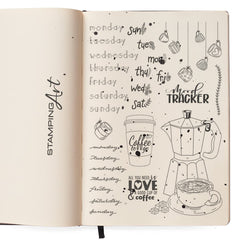 STAMPING Art
monday
tuesday
wednesday
thursday
friday
saturday
sunday
sun
tues
mon
thu
fri
wed
sat
Mood
TRACKER
Coffee
monday
tuesday
wednesday
thursday
friday
saturday
sunday
ALL YOU NEED IS
LOVE
AND A GOOD CUP OF
coffee